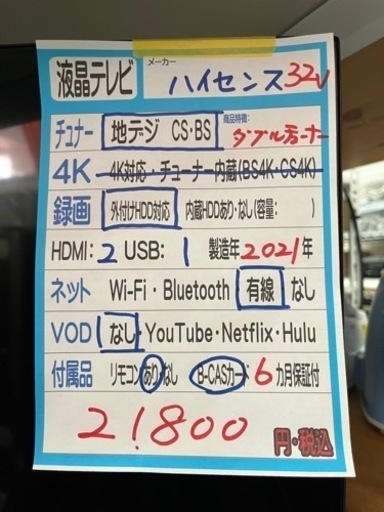 液晶テレビ メーカー ハイセンス 32V
チュナー 地デジ CS・BS 商品特徴: ダブルチューナー
4K 4K対応・チューナー内蔵(BS4K・CS4K)
録画 外付けHDD対応 内蔵HDDあり・なし(容量: )
HDMI: 2 USB: 1 製造年 2021年
ネット Wi-Fi・Bluetooth 有線 なし
VOD なし YouTube・Netflix・Hulu
付属品 リモコン あり なし B-CASカード 6カ月保証付
21800 円・税込